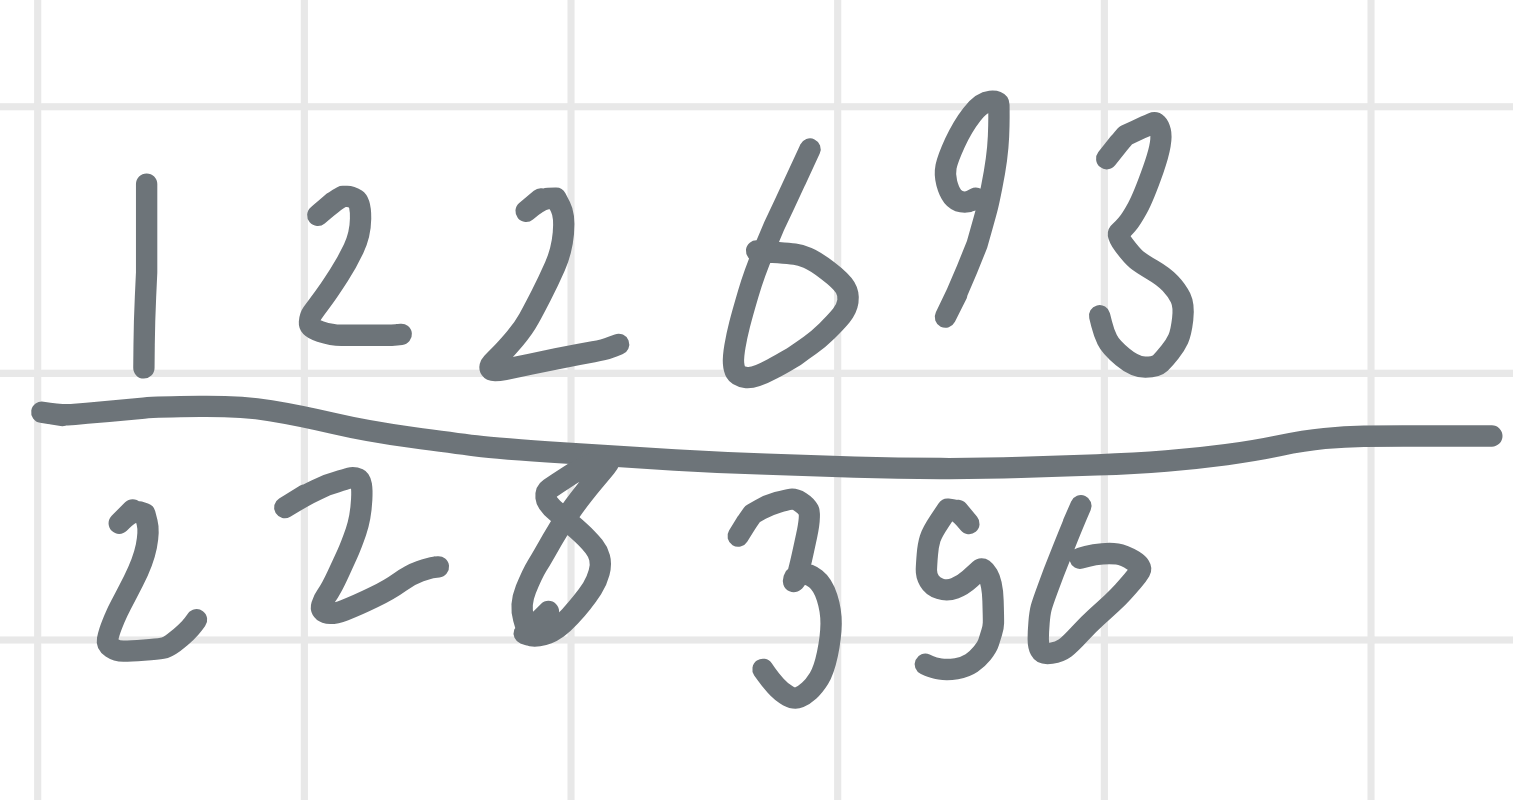 122693
228356